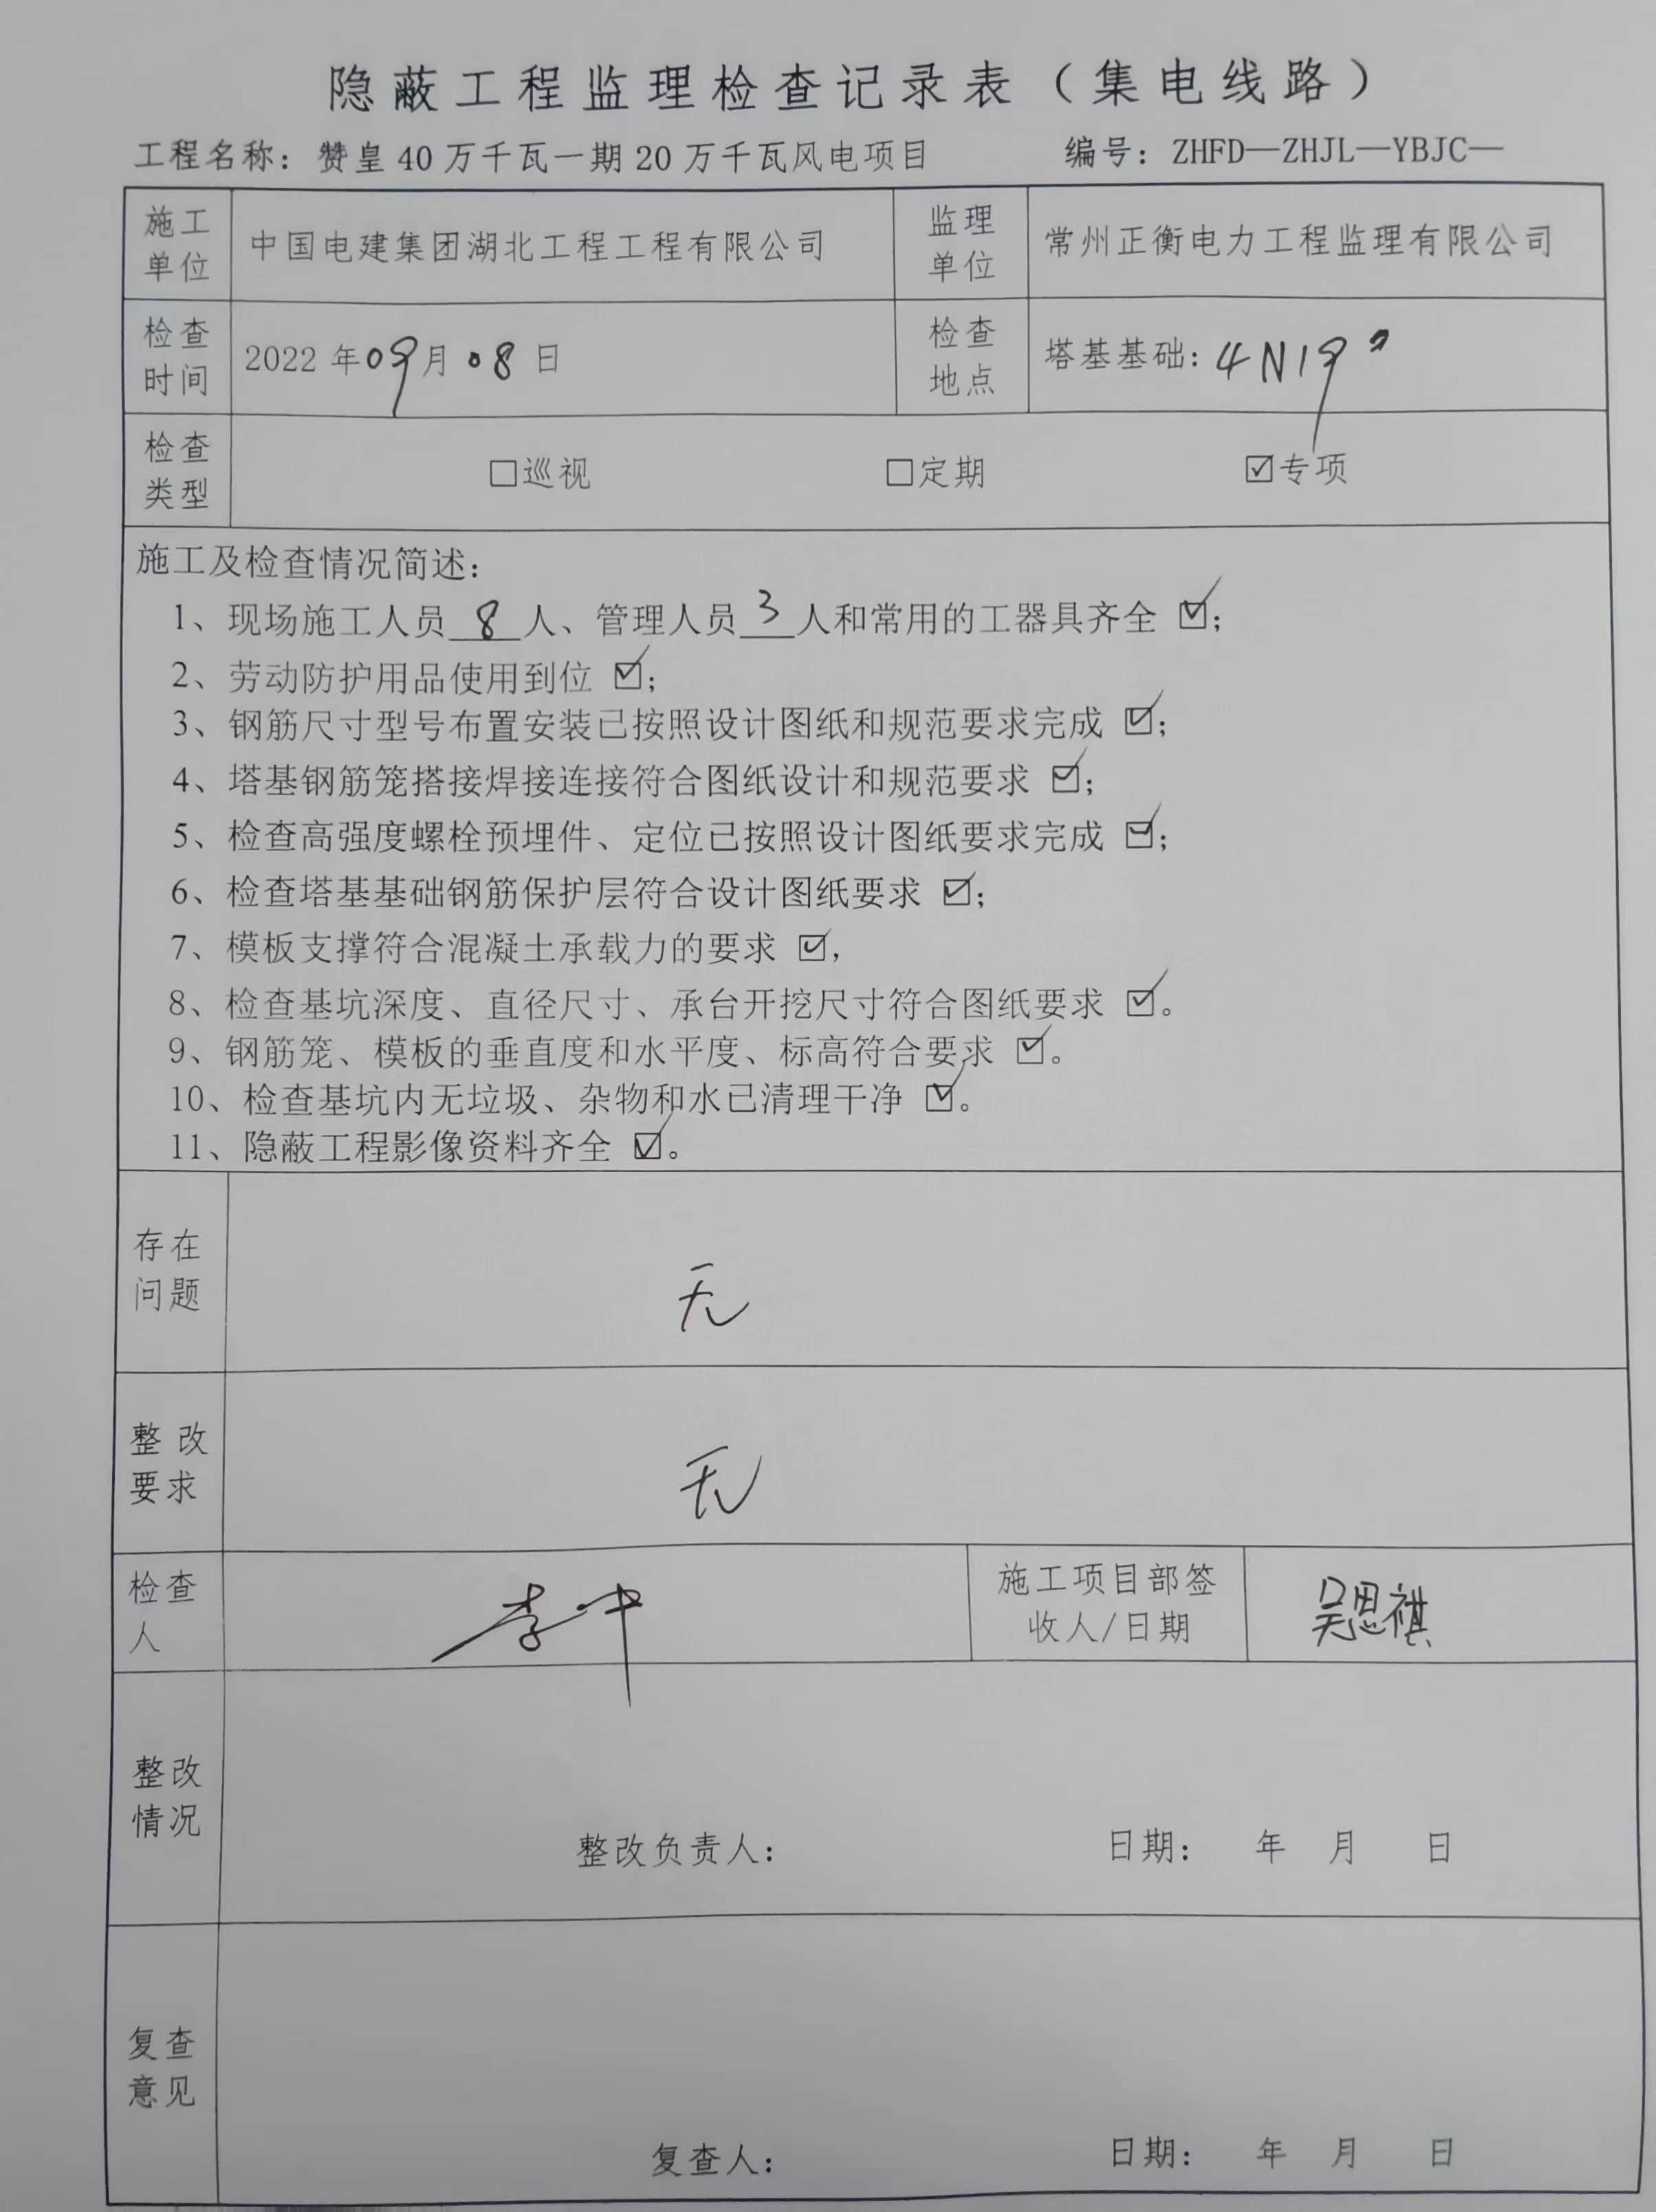 隐蔽工程监理检查记录表（集电线路）
工程名称：赞皇40万千瓦一期20万千瓦风电项目 编号：ZHFD—ZHJL—YBJC—
施工单位 中国电建集团湖北工程工程有限公司 监理单位 常州正衡电力工程监理有限公司
检查时间 2022年09月08日 检查地点 塔基基础：4N19#
检查类型 □巡视 □定期 ☑专项
施工及检查情况简述：
1、现场施工人员8人、管理人员3人和常用的工器具齐全 ☑；
2、劳动防护用品使用到位 ☑；
3、钢筋尺寸型号布置安装已按照设计图纸和规范要求完成 ☑；
4、塔基钢筋笼搭接焊接连接符合图纸设计和规范要求 ☑；
5、检查高强度螺栓预埋件、定位已按照设计图纸要求完成 ☑；
6、检查塔基基础钢筋保护层符合设计图纸要求 ☑；
7、模板支撑符合混凝土承载力的要求 ☑，
8、检查基坑深度、直径尺寸、承台开挖尺寸符合图纸要求 ☑。
9、钢筋笼、模板的垂直度和水平度、标高符合要求 ☑。
10、检查基坑内无垃圾、杂物和水已清理干净 ☑。
11、隐蔽工程影像资料齐全 ☑。
存在问题 无
整改要求 无
检查人 李中 施工项目部签收人/日期 吴思祺
整改情况
整改负责人： 日期： 年 月 日
复查意见
复查人： 日期： 年 月 日